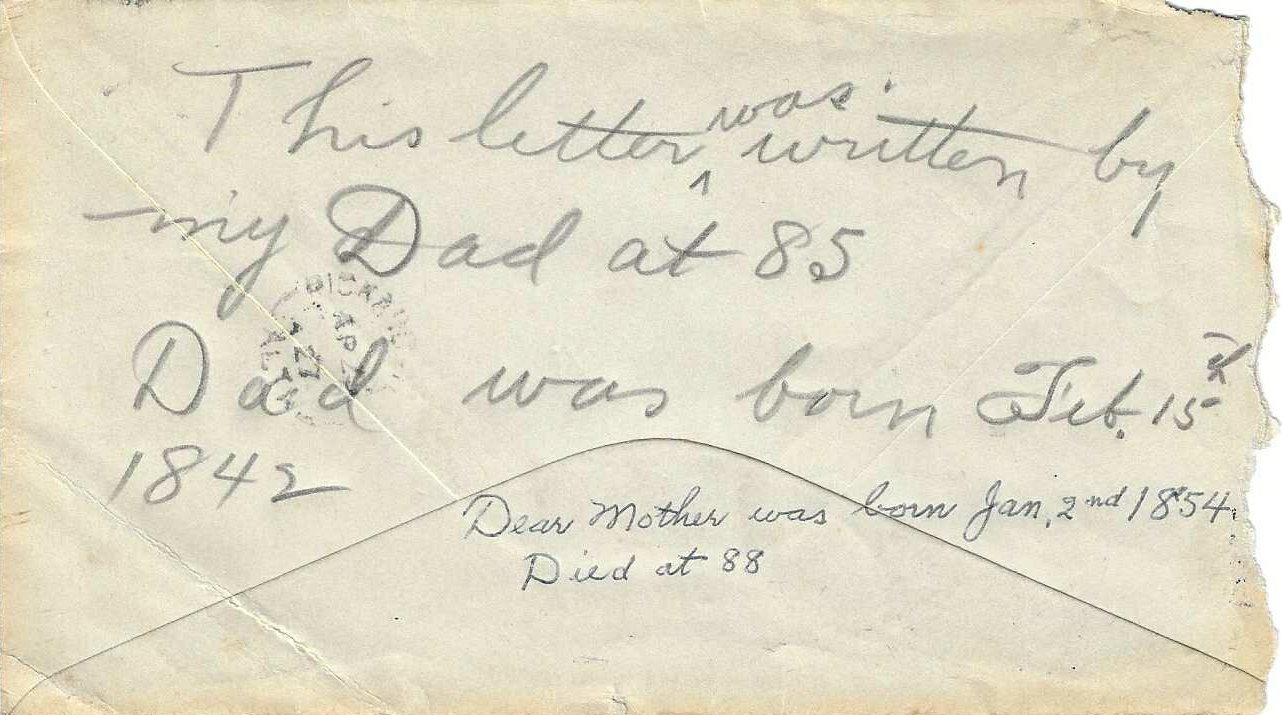 This letter was written by
my Dad at 85
AP 2
27
ALTA
Dad was born Feb. 15th
1842
Dear Mother was born Jan, 2nd 1854.
Died at 88